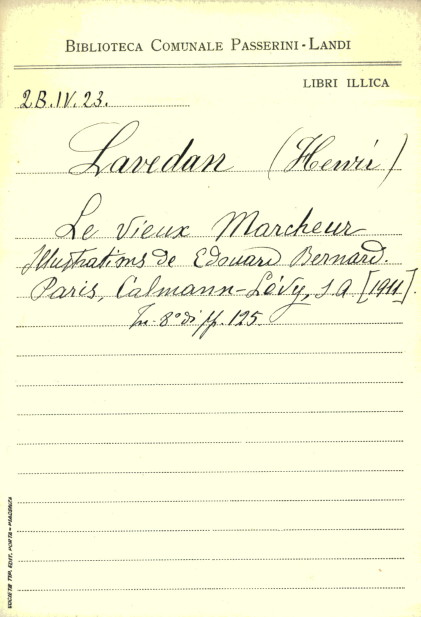 BIBLIOTECA COMUNALE PASSERINI-LANDI
LIBRI ILLICA
2B.IV.23.
Lavedan (Henri)
Le Vieux Marcheur
Illustrations de Edouard Bernard.
Paris, Calmann-Lévy, s.a. [1911].
In-8° di pp. 125.
SOCIETÀ TIP. EDIT. PORTA - PIACENZA